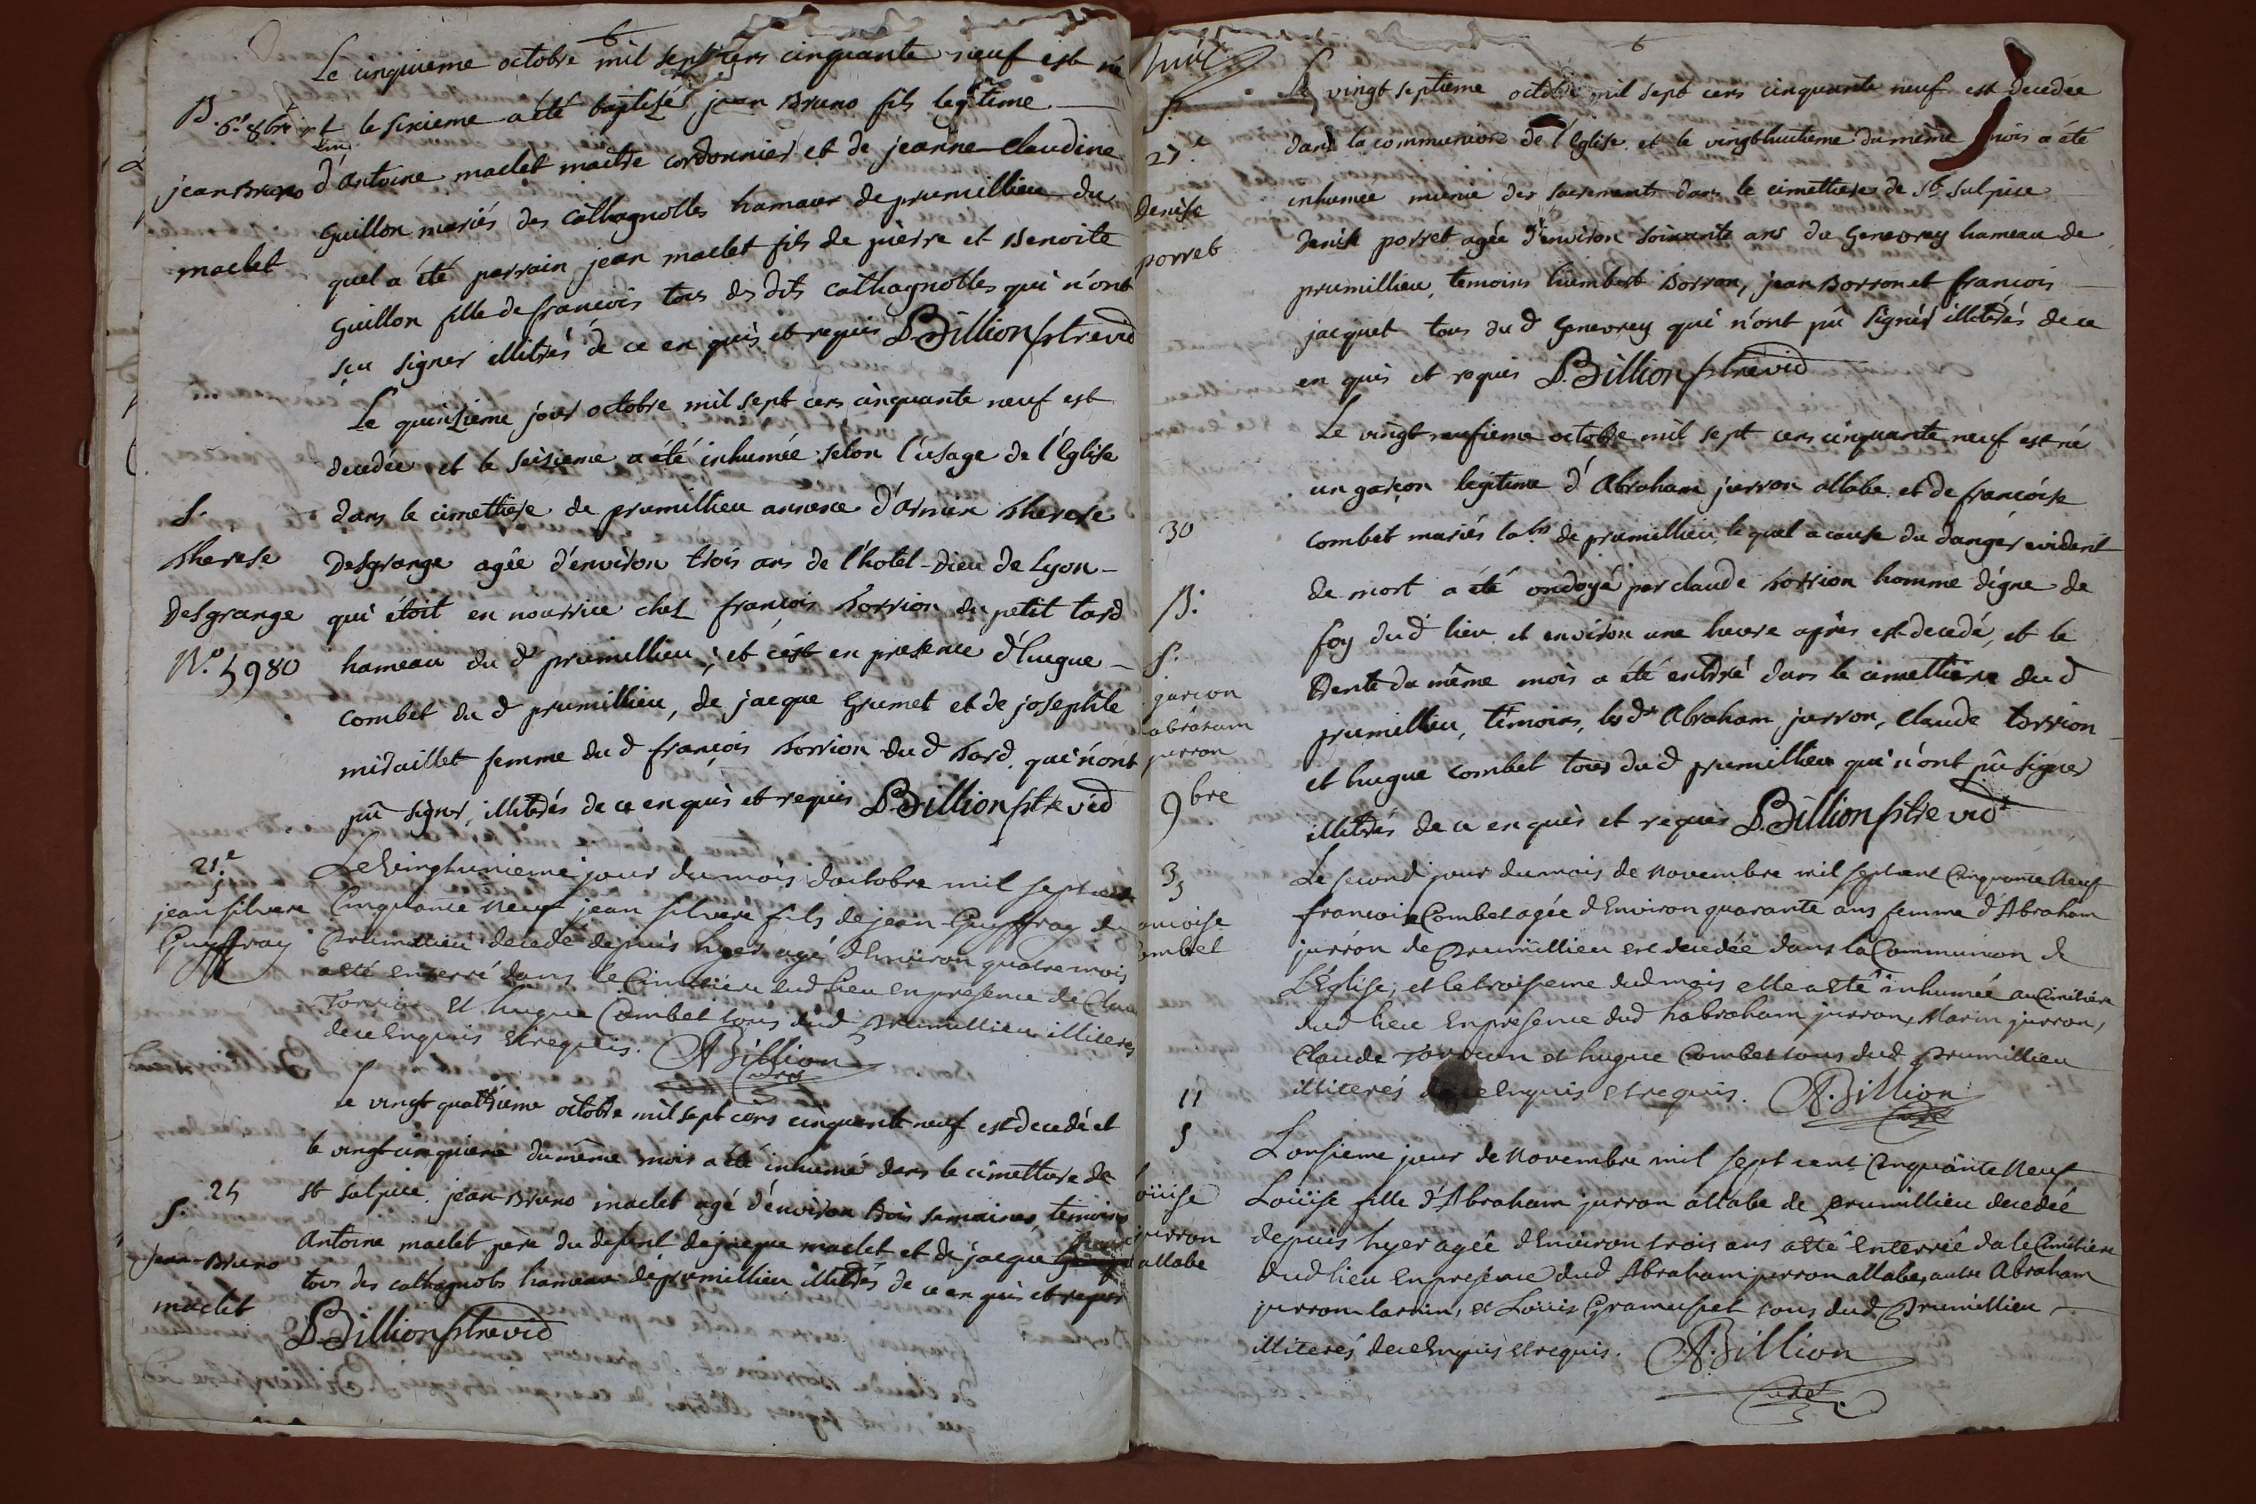 Le cinquieme octobre mil sept cens cinquante neuf est né
B. 6e 8bre
et le sixieme a été baptizé jean Bruno fils legitime
jean Bruno
maclet
d'Antoine maclet maitre cordonnier et de jeanne Claudine
Guillon mariés des Cathagnolles hameau de prumillieu du
quel a été parrain jean maclet fils de pierre et Benoite
Guillon fille de francois tous des dits cathagnolles qui n'ont
sçu signer illitrés de ce en quis et requis Billion ptre vic
Le quinzieme jour octobre mil sept cens cinquante neuf est
decedée et le seizieme a été inhumée selon l'usage de l'Eglise
S.
therese
Desgrange
N.º 5980
dans le cimettiere de prumillieu annexe d'armix therese
Desgrange agée d'environ trois ans de l'hotel-Dieu de Lyon
qui étoit en nourrice chez françois torrion du petit tard
hameau du d prumillieu, et c'est en presence d'hugue
combet du d prumillieu, de jacque Grumet et de josephte
miraillet femme du d françois torrion du d tard. qui n'ont
pû signer, illitrés de ce en quis et requis Billion ptre vic
21.e
S
jean silvere
Guyffray
Le vingtunieme jour du mois d'octobre mil sept cent
Cinquante Neuf jean silvere fils de jean Guyffray du
Prumillieu decedé depuis hyer agé d'Environ quatre mois
a eté enterré dans le Cimitiere dud lieu en presence de Claude
Torrion et hugue Combet tous dud Prumillieu illiterés
de ce Enquis et requis. A Billion
Curé
Le vingt quatrième octobre mil sept cens cinquante neuf est decedé et
le vingt cinquième du même mois a été inhumé dans le cimettiere de
25
S.
jean Bruno
maclet
st sulpice. jean Bruno maclet agé d'environ trois semaines, temoins
Antoine maclet pere du defunt de jacque maclet et de jacque
tous des cathagnols hameau de prumillieu illitrés de ce en quis et requis
Billion ptre vic
huit
6
S.
27.e
Denise
porret
Le vingt septieme octobre mil sept cens cinquante neuf est decedée
dans la communion de l'Eglise et le vingthuitieme du même mois a été
inhumée munie des sacrements dans le cimettiere de St Sulpice
Denise porret agée d'environ soixante ans du Genevrey hameau de
prumillieu, temoins humbert Borron, jean Borron et francois
jacquet tous du d Genevrey qui n'ont pû signer illitrés de ce
en quis et requis Billion ptre vic
Le vingt neufieme octobre mil sept cens cinquante neuf est né
30
B.
S.
garçon
abraham
jurron
un garçon legitime d'Abraham jurron allabe et de françoise
combet mariés lab.rs de prumillieu, le quel a cause du danger evident
de mort a été ondoyé par claude torrion homme digne de
foy dud lieu et environ une heure après est decedé, et le
trente du même mois a été enterré dans le cimettiere dud
prumillieu, temoins, les ds Abraham jurron, claude torrion
et hugue combet tous dud prumillieu qui n'ont pû signer
illitrés de ce en quis et requis Billion ptre vic
9bre
3
S
ancoise
ombet
Le second jour du mois de Novembre mil sept cent Cinquante Neuf
francoise Combet agée d'Environ quarante ans femme d'Abraham
jurron de Prumillieu est decedée dans la Communion de
L'Eglise, et le troisieme dud mois elle a eté inhumée au Cimitiere
dud lieu En presence dud habraham jurron, Marin jurron,
Claude Torrion et hugue Combet tous dud Prumillieu
illiterés de ce Enquis et requis. A. Billion
Curé
11
S
Loüise
jurron
allabe
L'onsieme jour de Novembre mil sept cent Cinquante Neuf
Loüise fille d'Abraham jurron allabe de Prumillieu decedée
depuis hyer agée d'Environ trois ans a eté Enterrée da le Cimitiere
dud lieu En presence dud Abraham jurron allabe, autre Abraham
jurron et Loüis Gramusset tous dud Prumillieu
illiterés de ce Enquis et requis. A. Billion
Curé